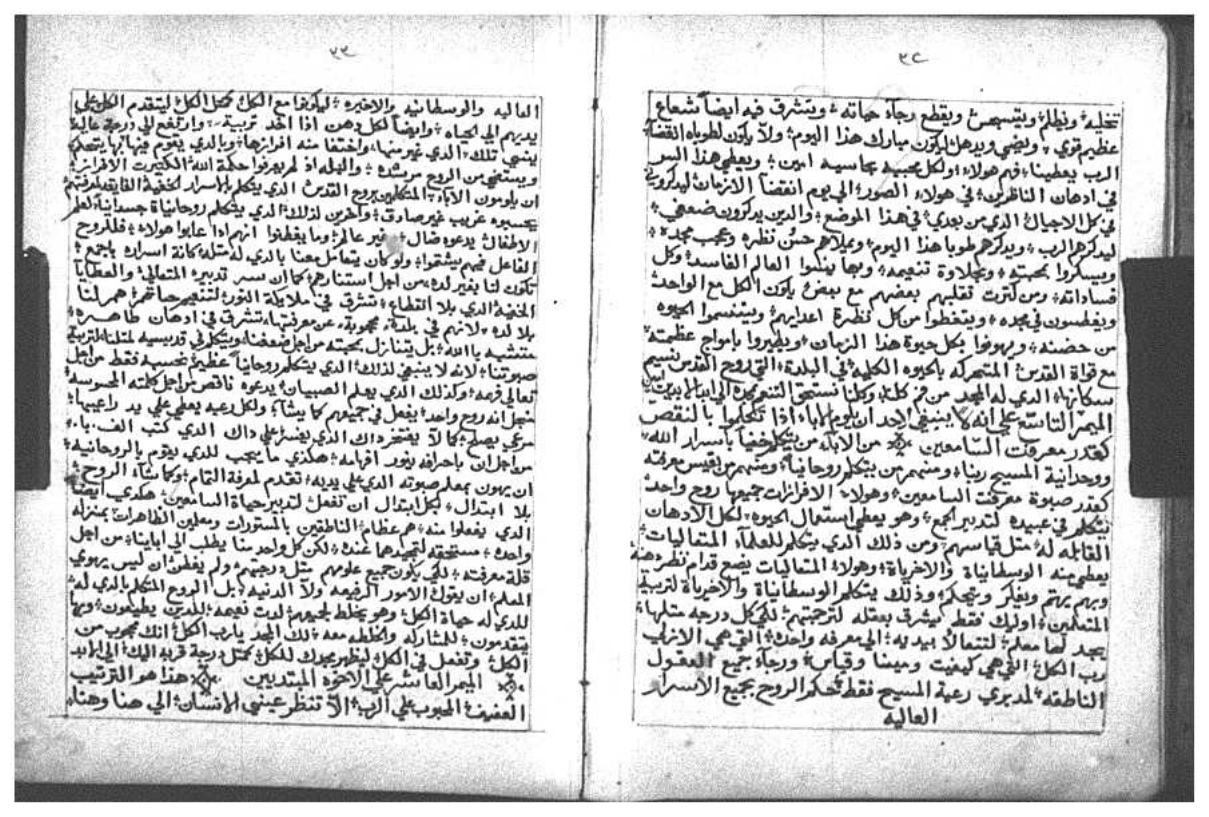 ٣٤
تخليه ونظلم ويتسجس ويقطع رجاء حياته ويتشرق فيه ايضا شعاع
عظيم قوي ويضي ويدهل ليكون مبارك هذا اليوم ولا يكون لطوباه انقضا
الرب يعطينا فهم هولاء ولكل محبيه بحاسيه امين ويعطي هذا السر
في ادهان الناظرين في هولاء الصور الي يوم انقضا الازمان ليدكروني
في كل الاجيال الدي من بعدي في هذا الموضع والدين يدكرون ضعفي
ليدكرهم الرب ويدكرهم طوبا هذا اليوم ويملاهم حسن نظره وعجب مجده
ويسكروا بمحبته وبحلاوة تنعيمه وبها ينسوا العالم الفاسد وكل
فساداته ومن كترت تقلبهم بعضهم مع بعض يكون الكل مع الواحد
ويغطسون في مجده ويتغطوا من كل نظرة اعدايهم ويتنسموا الحيوه
من حضنه ويهونوا بكل حيوة هذا الزمان ويطيروا بامواج عظمته
مع قواة القدس المتحركه بالحيوه الكليه في البلدة التي روح القدس نسيم
سكانها الدي له المجد من فم كلنا وكلنا نستحق التنعم بمجده الي ابد الابدين امين
الميمر التاسع علي انه لا ينبغي لاحد ان يلوم الاباء اذا تكلموا بالنقص
كقدر معرفت السامعين من الاباء من يتكلم خفيا باسرار الله
ووحدانية المسيح ربنا ومنهم من يتكلم روحانيا ومنهم من يقيس معرفته
كقدر صبوة معرفت السامعين وهولاء الافرازات جميعها روح واحد
يتكلم في عبيده لتدبير الجمع وهو يعطي استعمال الحيوه لكل الادهان
القابله له مثل قياسهم ومن ذلك الدي يتكلم للعلماء المتعاليات
يعطي منه الوسطانياة والاخرياة وهولاء المتعاليات يضع قدام نظر دهنه
وبهم يهتم ويفكر ويتحكم وذلك يتكلم الوسطانياة والاخرياة لتربية
المتعلمين اوليك فقط ليشرق بعقله لترجمتهم للكي كل درجه متلها
يجد لها معلم لتتعالا بيديه الي معرفه واحده التي هي الازلي
رب الكل التي هي كميفيت ومينا وقياس ورجاء جميع العقول
الناطقه لمدبري رعية المسيح فقط تحكم الروح بجميع الاسرار
العاليه
٣٣
العاليه والوسطانيه والاخيره ليكونوا مع الكل كمثل الكل ليتقدم الكل علي
يديهم الي الحياه وايضا لكل دهن اذا اخد تربية وارتفع الي درجة عاليه
ينسي تلك الدي غير منها واختفا منه افرازها وبالدي يقوم فيها بها يتحكم
ويستقي من الروح مرشده والبله اذ لم يعرفوا حكمة الله الكتيرت الافراز
ان يلومون الاباء المتكلمين بروح القدس الدي يتكلم بالاسرار الخفية الفايقه لمعرفتهم
يحسبوه غريب غير صادق واخرين لذلك الدي يتكلم روحانياة جسدانيا لعلم
الاطفال يدعوه ضال غير عالم وما يفطنوا انهم اذا عابوا هولاء فللروح
الفاعل فيهم يشتموا ولو كان يتعامل معنا بالدي له مثله كانة اسراره باجمع
تكون لنا بغير لده من اجل استتارهم كما ان سر تدبيره المتعالي والعطايا
الخفية الدي بلا انقطاع تشرق في ملايكة النور لتنعيم حياتهم هم لنا
بلا لده لانهم في بلدة محجوبة عن معرفتها تشرق في ادهان طاهره
متشبه بالله بل يتنازل بمحبته من اجل ضعفنا ويتكلم في قديسيه لمتلنا لتربية
صبوتنا لانه لا ينبغي لذلك الدي يتكلم روحانيا عظيم نحسبه فقط من اجل
تعالي فهمه وكذلك الدي يعلم الصبيان يدعوه ناقص من اجل كلمته المحسوسه
من اجل انه روح واحد يفعل في جميعهم كما يشاء ولكل رعيه يعطي علي يد راعيها
مرعي يصلح كما لا يفتخر داك الدي يفسر علي داك الدي كتب الف باء
من اجل ان باحرافه ينور افهامه هكذي ما يجب للدي يقوم بالروحانيه
ان يهون بمعلم صبوته الدي علي يديه تقدم لمعرفة التمام وكما شاء الروح
بلا ابتدال لكل ابتدال ان تفعل لتدبير حياة السامعين هكدي ايضا
الدي يفعلوا منه هم عظام الناطقين بالمستورات ومعلمين الظاهرات بمنزله
واحده مستحقه لتمجيدها عنده لكن كل واحد منا يطلب الي ابايناء من اجل
قلة معرفته للكي يكون جميع علومهم مثل درجتهم ولم يفطن ان ليس بهوي
المعلم ان يقول الامور الرفيعه ولا الدنيه بل الروح المتكلم بالدي له
للدي له حياة الكل وهو يخلط لجميعهم لدت نعيمه للدين يطيعون وبها
يتقدمون للمشاركه والخلطه معه لك المجد يارب الكل انك محجوب من
الكل وتفعل في الكل ليظهر مجدك للكل كمتل درجة قربه اليك الي الابد
الميمر العاشر علي الاخوه المبتديين هذا هو الترتيب
العفيف المحبوب علي الرب الا تنظر عيني الانسان الي هنا وهنا